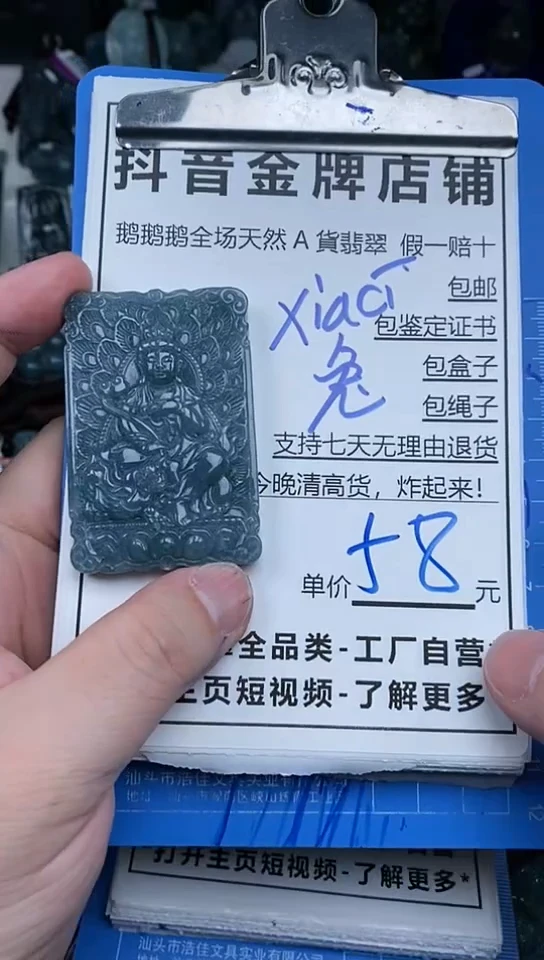 抖音金牌店铺
鹅鹅鹅全场天然A貨翡翠 假一赔十
包邮
xiaci
包鉴定证书
兔
包盒子
包绳子
支持七天无理由退货
今晚清高货，炸起来！
单价58元
全品类-工厂自营
主页短视频-了解更多
汕头市浩佳文具实业有限公司
打开主页短视频-了解更多*
汕头市浩佳文具实业有限公司